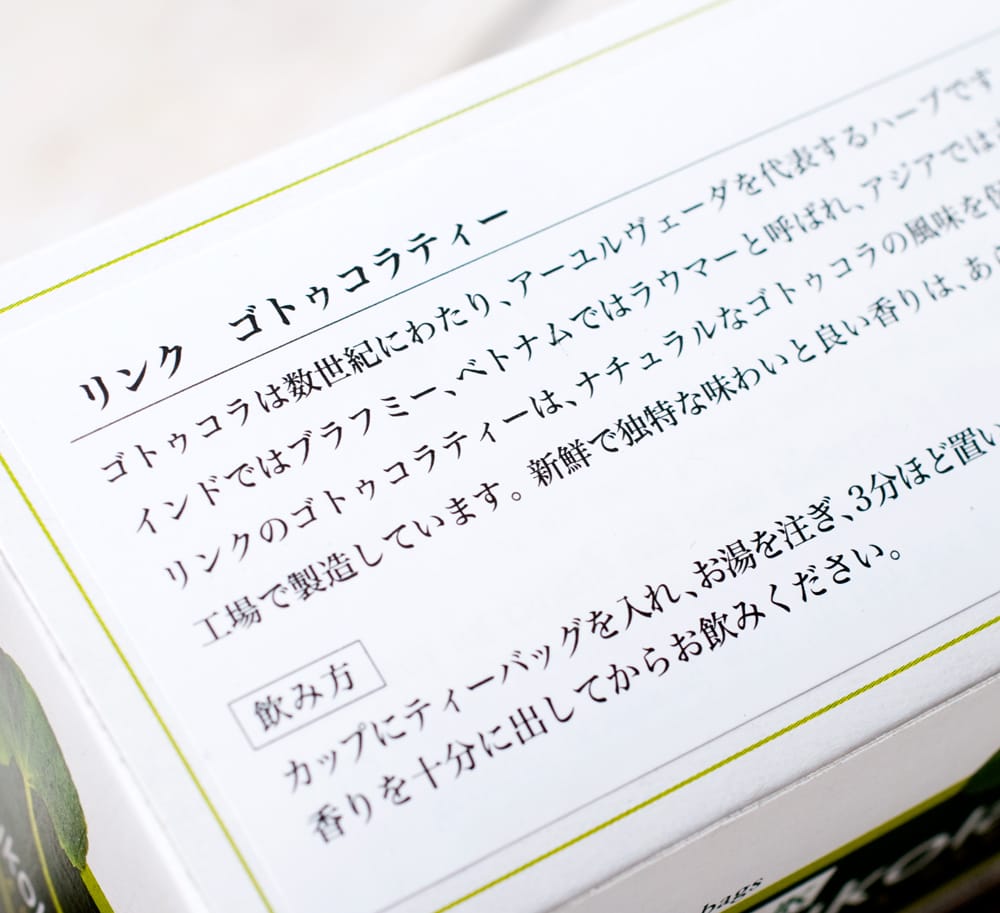 リンク ゴトゥコラティー
ゴトゥコラは数世紀にわたり、アーユルヴェーダを代表するハーブです
インドではブラフミー、ベトナムではラウマーと呼ばれ、アジアでは
リンクのゴトゥコラティーは、ナチュラルなゴトゥコラの風味を保
工場で製造しています。新鮮で独特な味わいと良い香りは、あ
飲み方
カップにティーバッグを入れ、お湯を注ぎ、3分ほど置い
香りを十分に出してからお飲みください。
bags